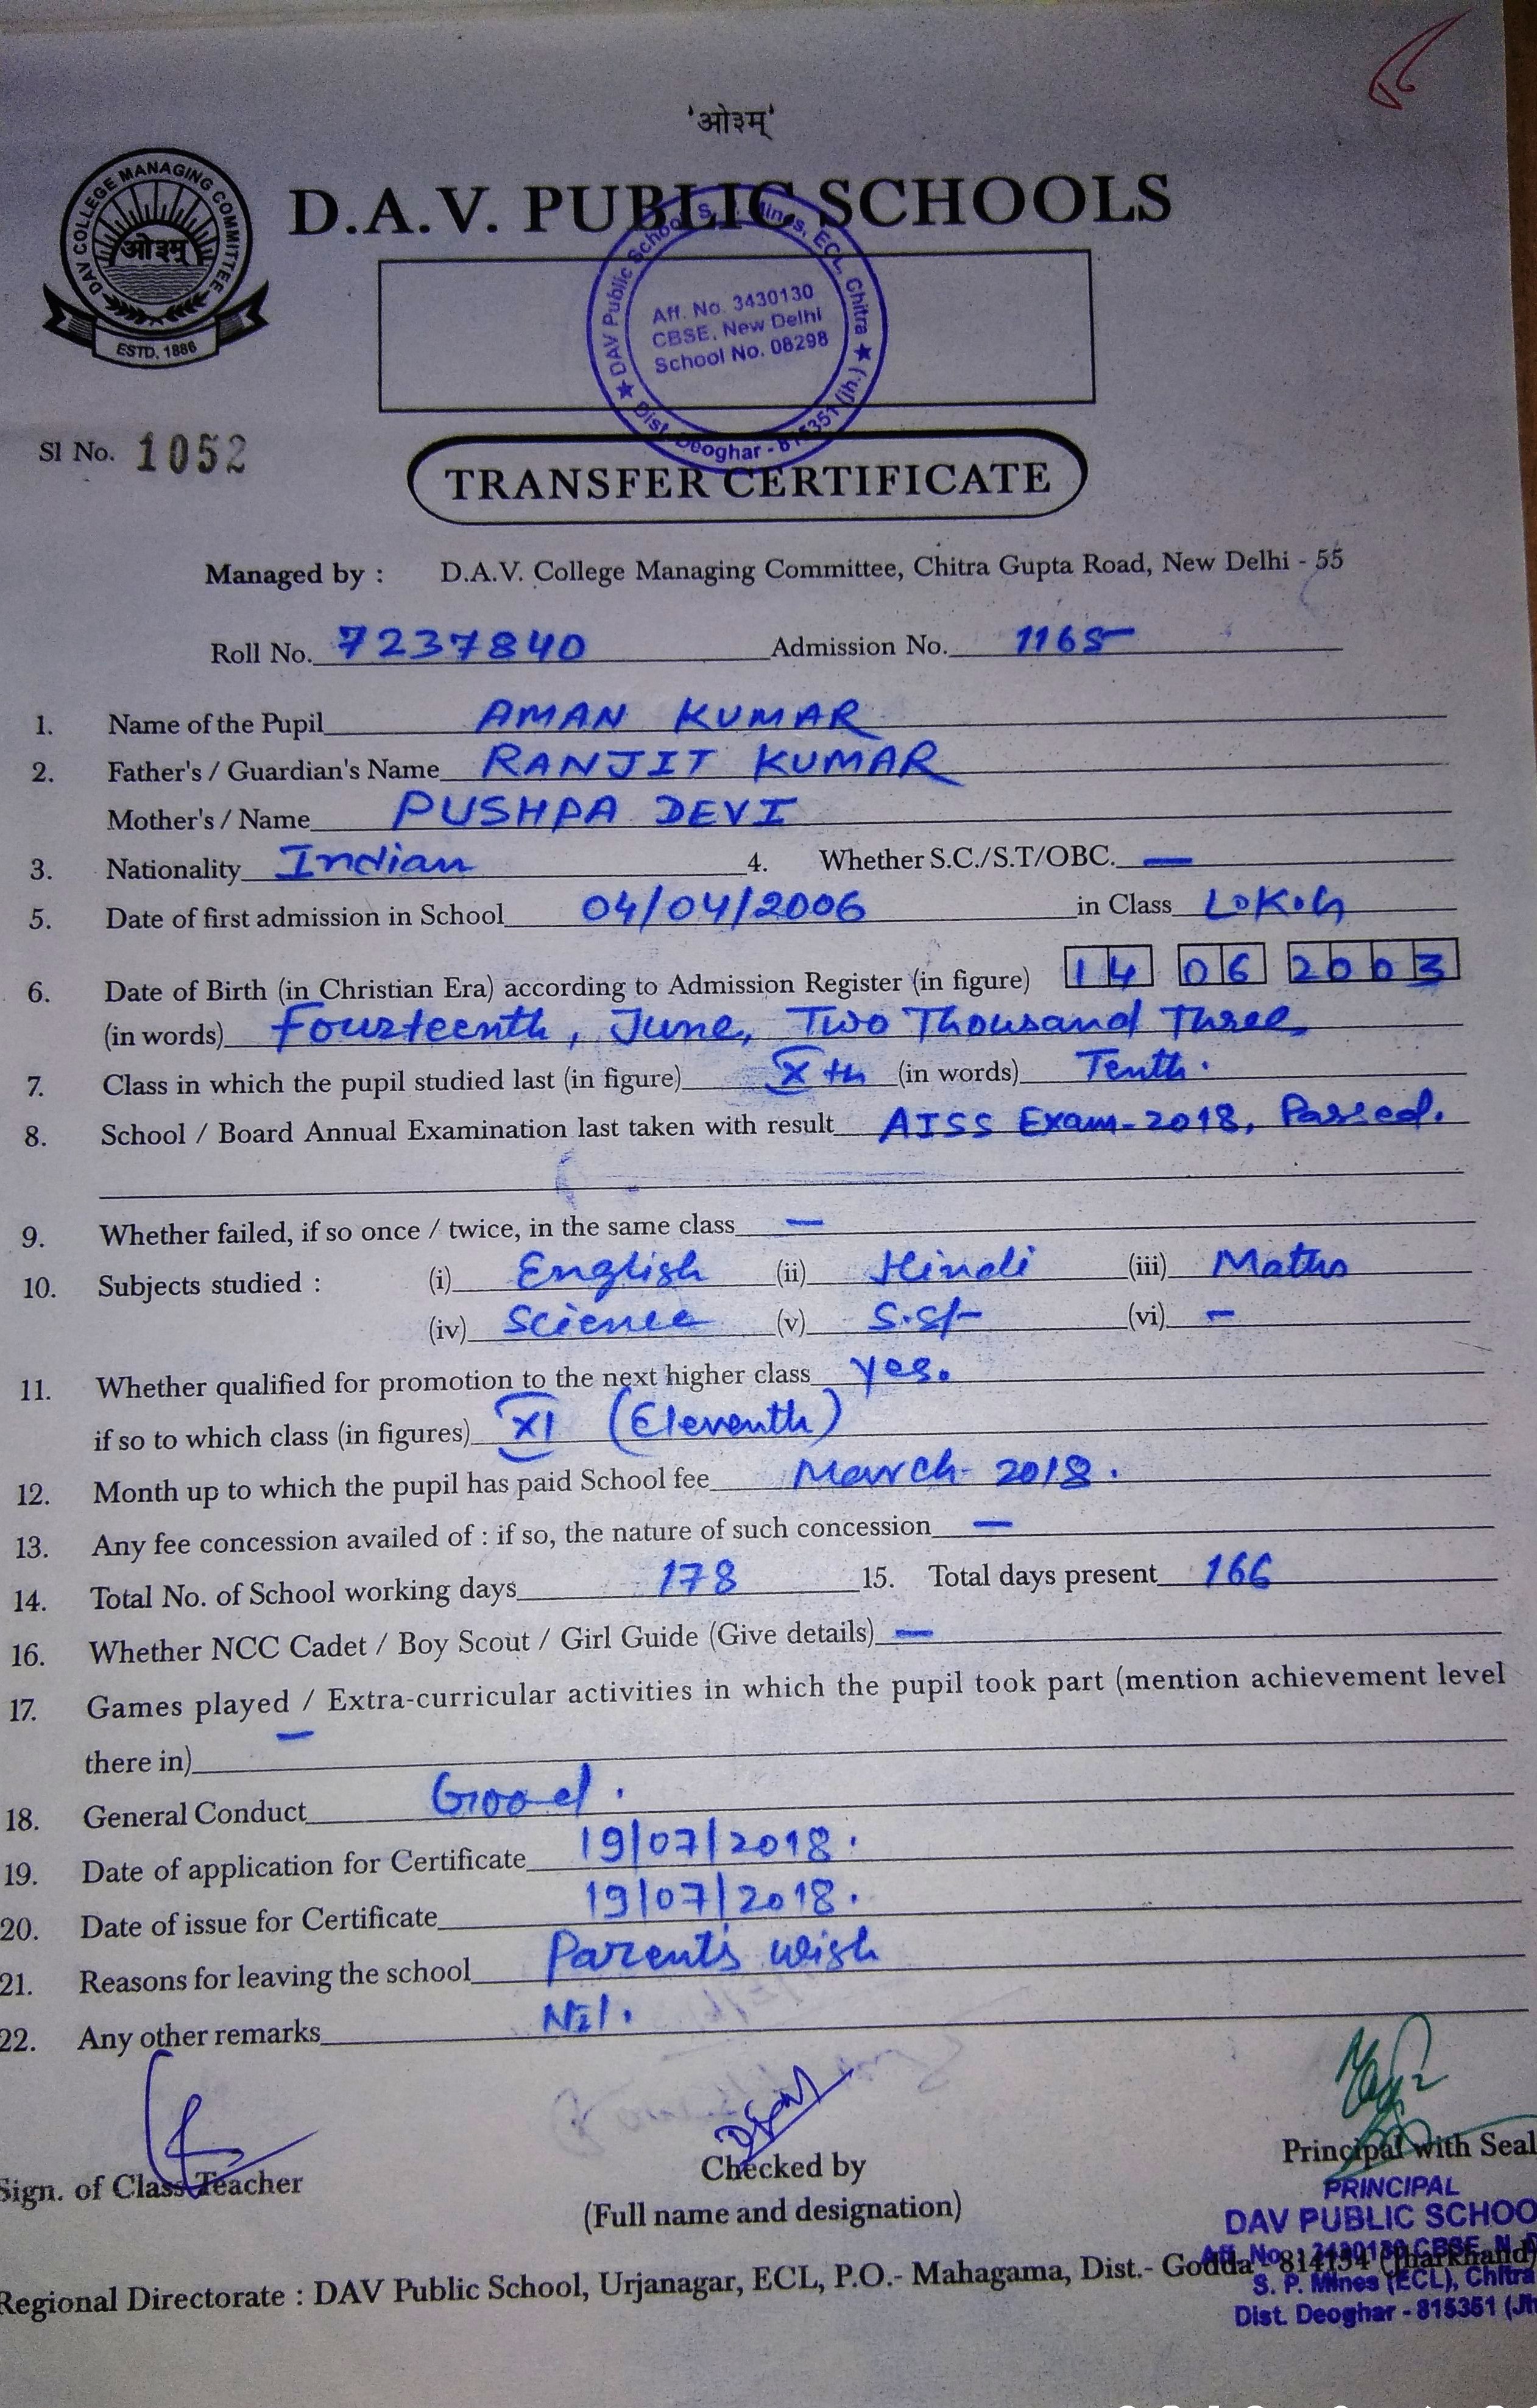 'ओ३म्'
DAV COLLEGE MANAGING COMMITTEE
ओ३म्
ESTD. 1886
D.A.V. PUBLIC SCHOOLS
DAV Public School, S. P. Mines, ECL, Chitra ★ Dist. Deoghar - 815351 (Jh.) ★
Aff. No. 3430130
CBSE, New Delhi
School No. 08298
Sl No. 1052
TRANSFER CERTIFICATE
Managed by : D.A.V. College Managing Committee, Chitra Gupta Road, New Delhi - 55
Roll No. 7237840 Admission No. 1165
1. Name of the Pupil AMAN KUMAR
2. Father's / Guardian's Name RANJIT KUMAR
Mother's / Name PUSHPA DEVI
3. Nationality Indian 4. Whether S.C./S.T/OBC. —
5. Date of first admission in School 04/04/2006 in Class L.K.G
6. Date of Birth (in Christian Era) according to Admission Register (in figure) 14 06 2003
(in words) Fourteenth, June, Two Thousand Three
7. Class in which the pupil studied last (in figure) Xth (in words) Tenth.
8. School / Board Annual Examination last taken with result AISS Exam-2018, Passed.
9. Whether failed, if so once / twice, in the same class —
10. Subjects studied : (i) English (ii) Hindi (iii) Maths
(iv) Science (v) S.St (vi) —
11. Whether qualified for promotion to the next higher class yes.
if so to which class (in figures) XI (Eleventh)
12. Month up to which the pupil has paid School fee March-2018.
13. Any fee concession availed of : if so, the nature of such concession —
14. Total No. of School working days 178 15. Total days present 166
16. Whether NCC Cadet / Boy Scout / Girl Guide (Give details) —
17. Games played / Extra-curricular activities in which the pupil took part (mention achievement level
there in) —
18. General Conduct Good.
19. Date of application for Certificate 19/07/2018.
20. Date of issue for Certificate 19/07/2018.
21. Reasons for leaving the school Parent's wish
22. Any other remarks Nil.
Sign. of Class Teacher
Checked by
(Full name and designation)
Principal with Seal
PRINCIPAL
DAV PUBLIC SCHOO
Aff. No. : 3430130 CBSE, N.
S. P. Mines (ECL), Chitra
Dist. Deoghar - 815351 (Jh
Regional Directorate : DAV Public School, Urjanagar, ECL, P.O.- Mahagama, Dist.- Godda - 814154 (Jharkhand)